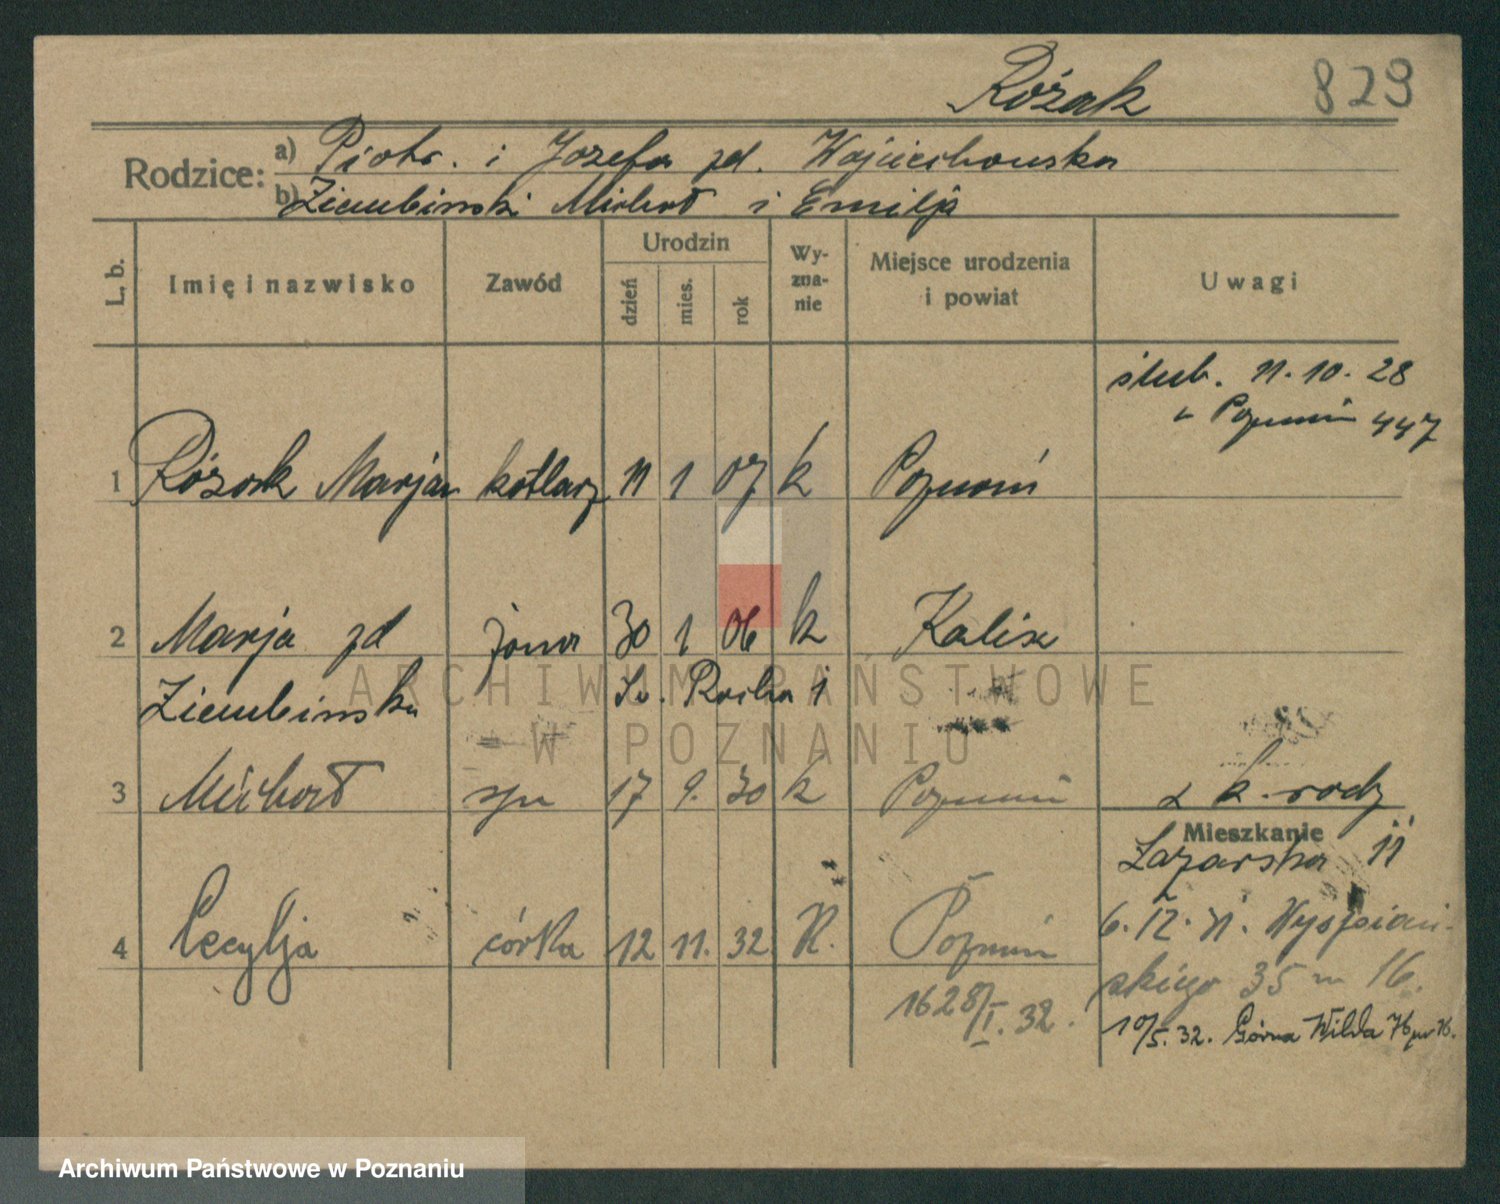 Różak 829
Rodzice: a) Piotr. i Józefa zd. Wojciechowska
b) Ziembinski Michał i Emilja
L. b. Imię i nazwisko Zawód Urodzin dzień mies. rok Wyznanie Miejsce urodzenia i powiat Uwagi
ślub. 11.10.28
w Poznaniu 447
1 Różak Marjan kotlarz 11 1 07 k Poznań
2 Marja zd żona 30 1 06 k Kalisz
Ziembinska Św. Rocha 1
3 Michał syn 17 9. 30 k Poznań z k. rodz
Mieszkanie
Łazarska 11
4 Cecylja córka 12 11. 32 K. Poznań
6.12.31. Wyspiań-
skiego 35 m 16.
1628/I.32.
10/5.32. Górna Wilda 76 m 16.
ARCHIWUM PAŃSTWOWE
W POZNANIU
Archiwum Państwowe w Poznaniu